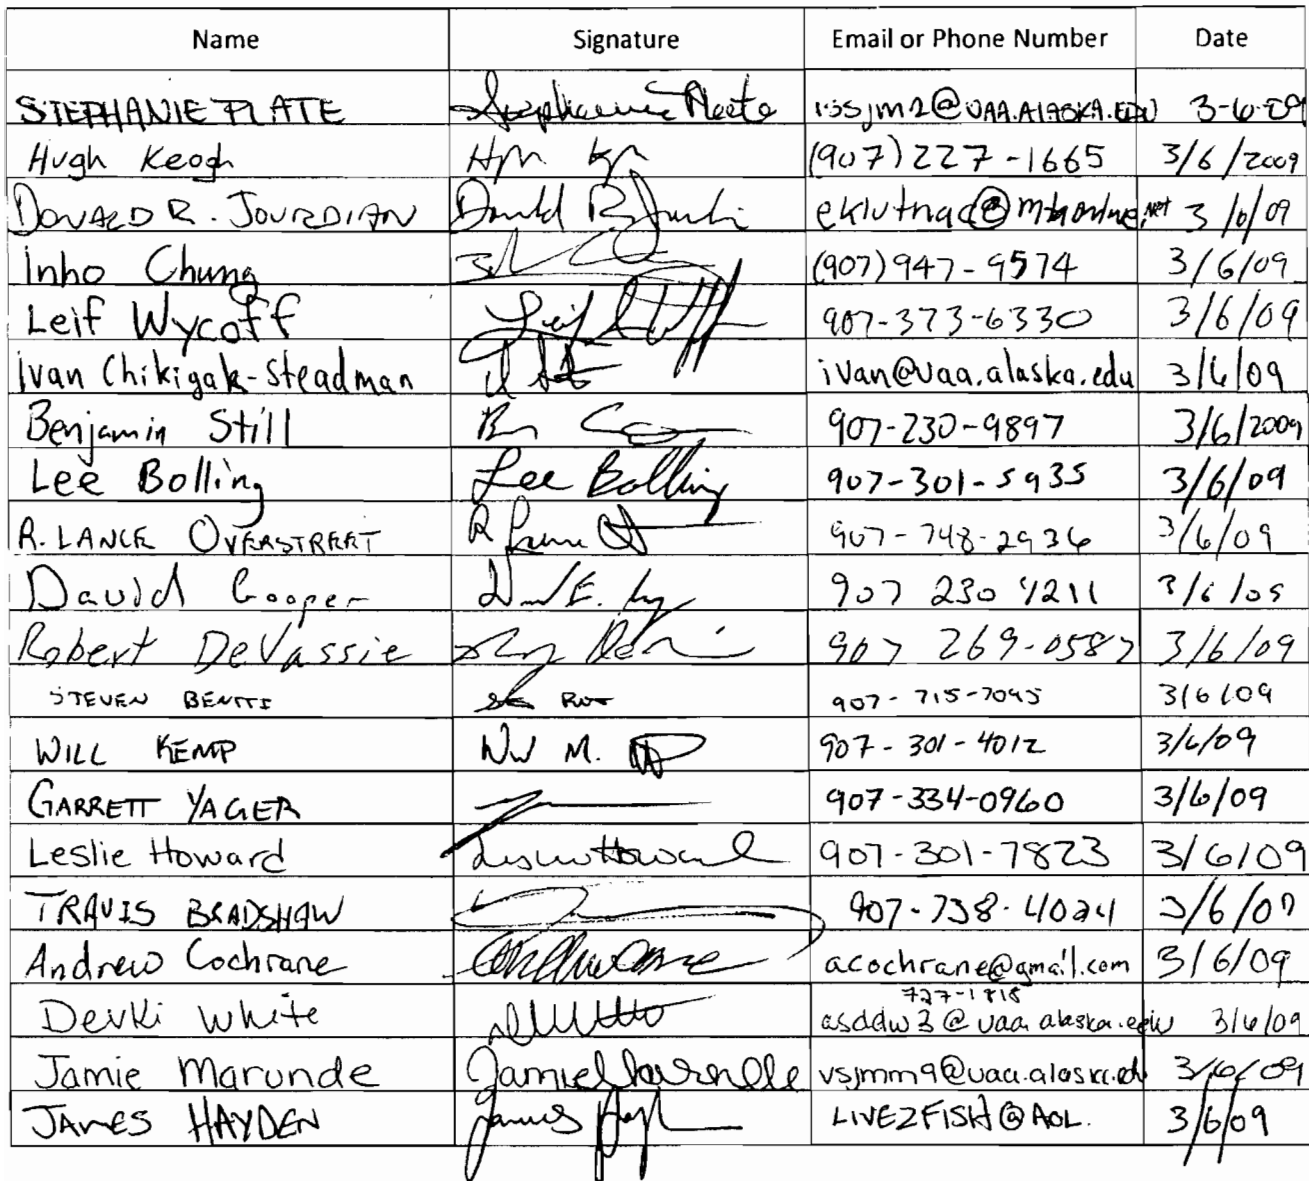 Name Signature Email or Phone Number Date
STEPHANIE PLATE Stephanie Plate @UAA.ALASKA.EDU 3-6-09
Hugh Keogh (907) 227-1665 3/6/2009
DONALD R. JOURDIAN eklutnac@mtaonline.net 3/6/09
Inho Chung (907) 947-9574 3/6/09
Leif Wycoff 907-373-6330 3/6/09
Ivan Chikigak-Steadman ivan@uaa.alaska.edu 3/6/09
Benjamin Still 907-230-9897 3/6/2009
Lee Bolling Lee Bolling 907-301-5935 3/6/09
R. LANCE OVERSTREET 907-748-2936 3/6/09
David Cooper 907 230 4211 3/6/09
Robert DeVassie 907 269-0587 3/6/09
STEVEN 907-715-7045 3/6/09
WILL KEMP 907-301-4012 3/6/09
GARRETT YAGER 907-334-0960 3/6/09
Leslie Howard Leslie Howard 907-301-7823 3/6/09
TRAVIS BRADSHAW 907-738-4024 3/6/09
Andrew Cochrane acochrane@gmail.com 3/6/09
727-1818
Devki White asddw3@uaa.alaska.edu 3/6/09
Jamie Marunde Jamie Marunde vsjmm9@uaa.alaska.edu 3/6/09
JAMES HAYDEN James LIVE2FISH@AOL. 3/6/09